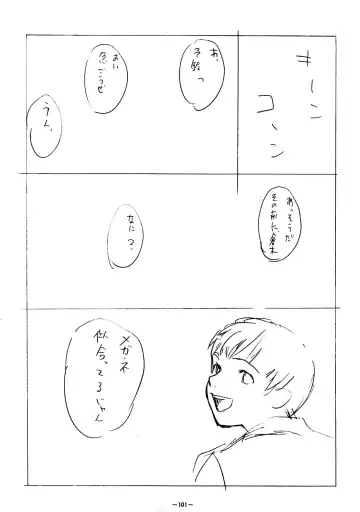 キーン
コーン
あ、
予鈴っ
おい
急ごうぜ
うん、
あっそうだ
その前に、倉木
なにっ
メガネ
似合ってるじゃん
－101－